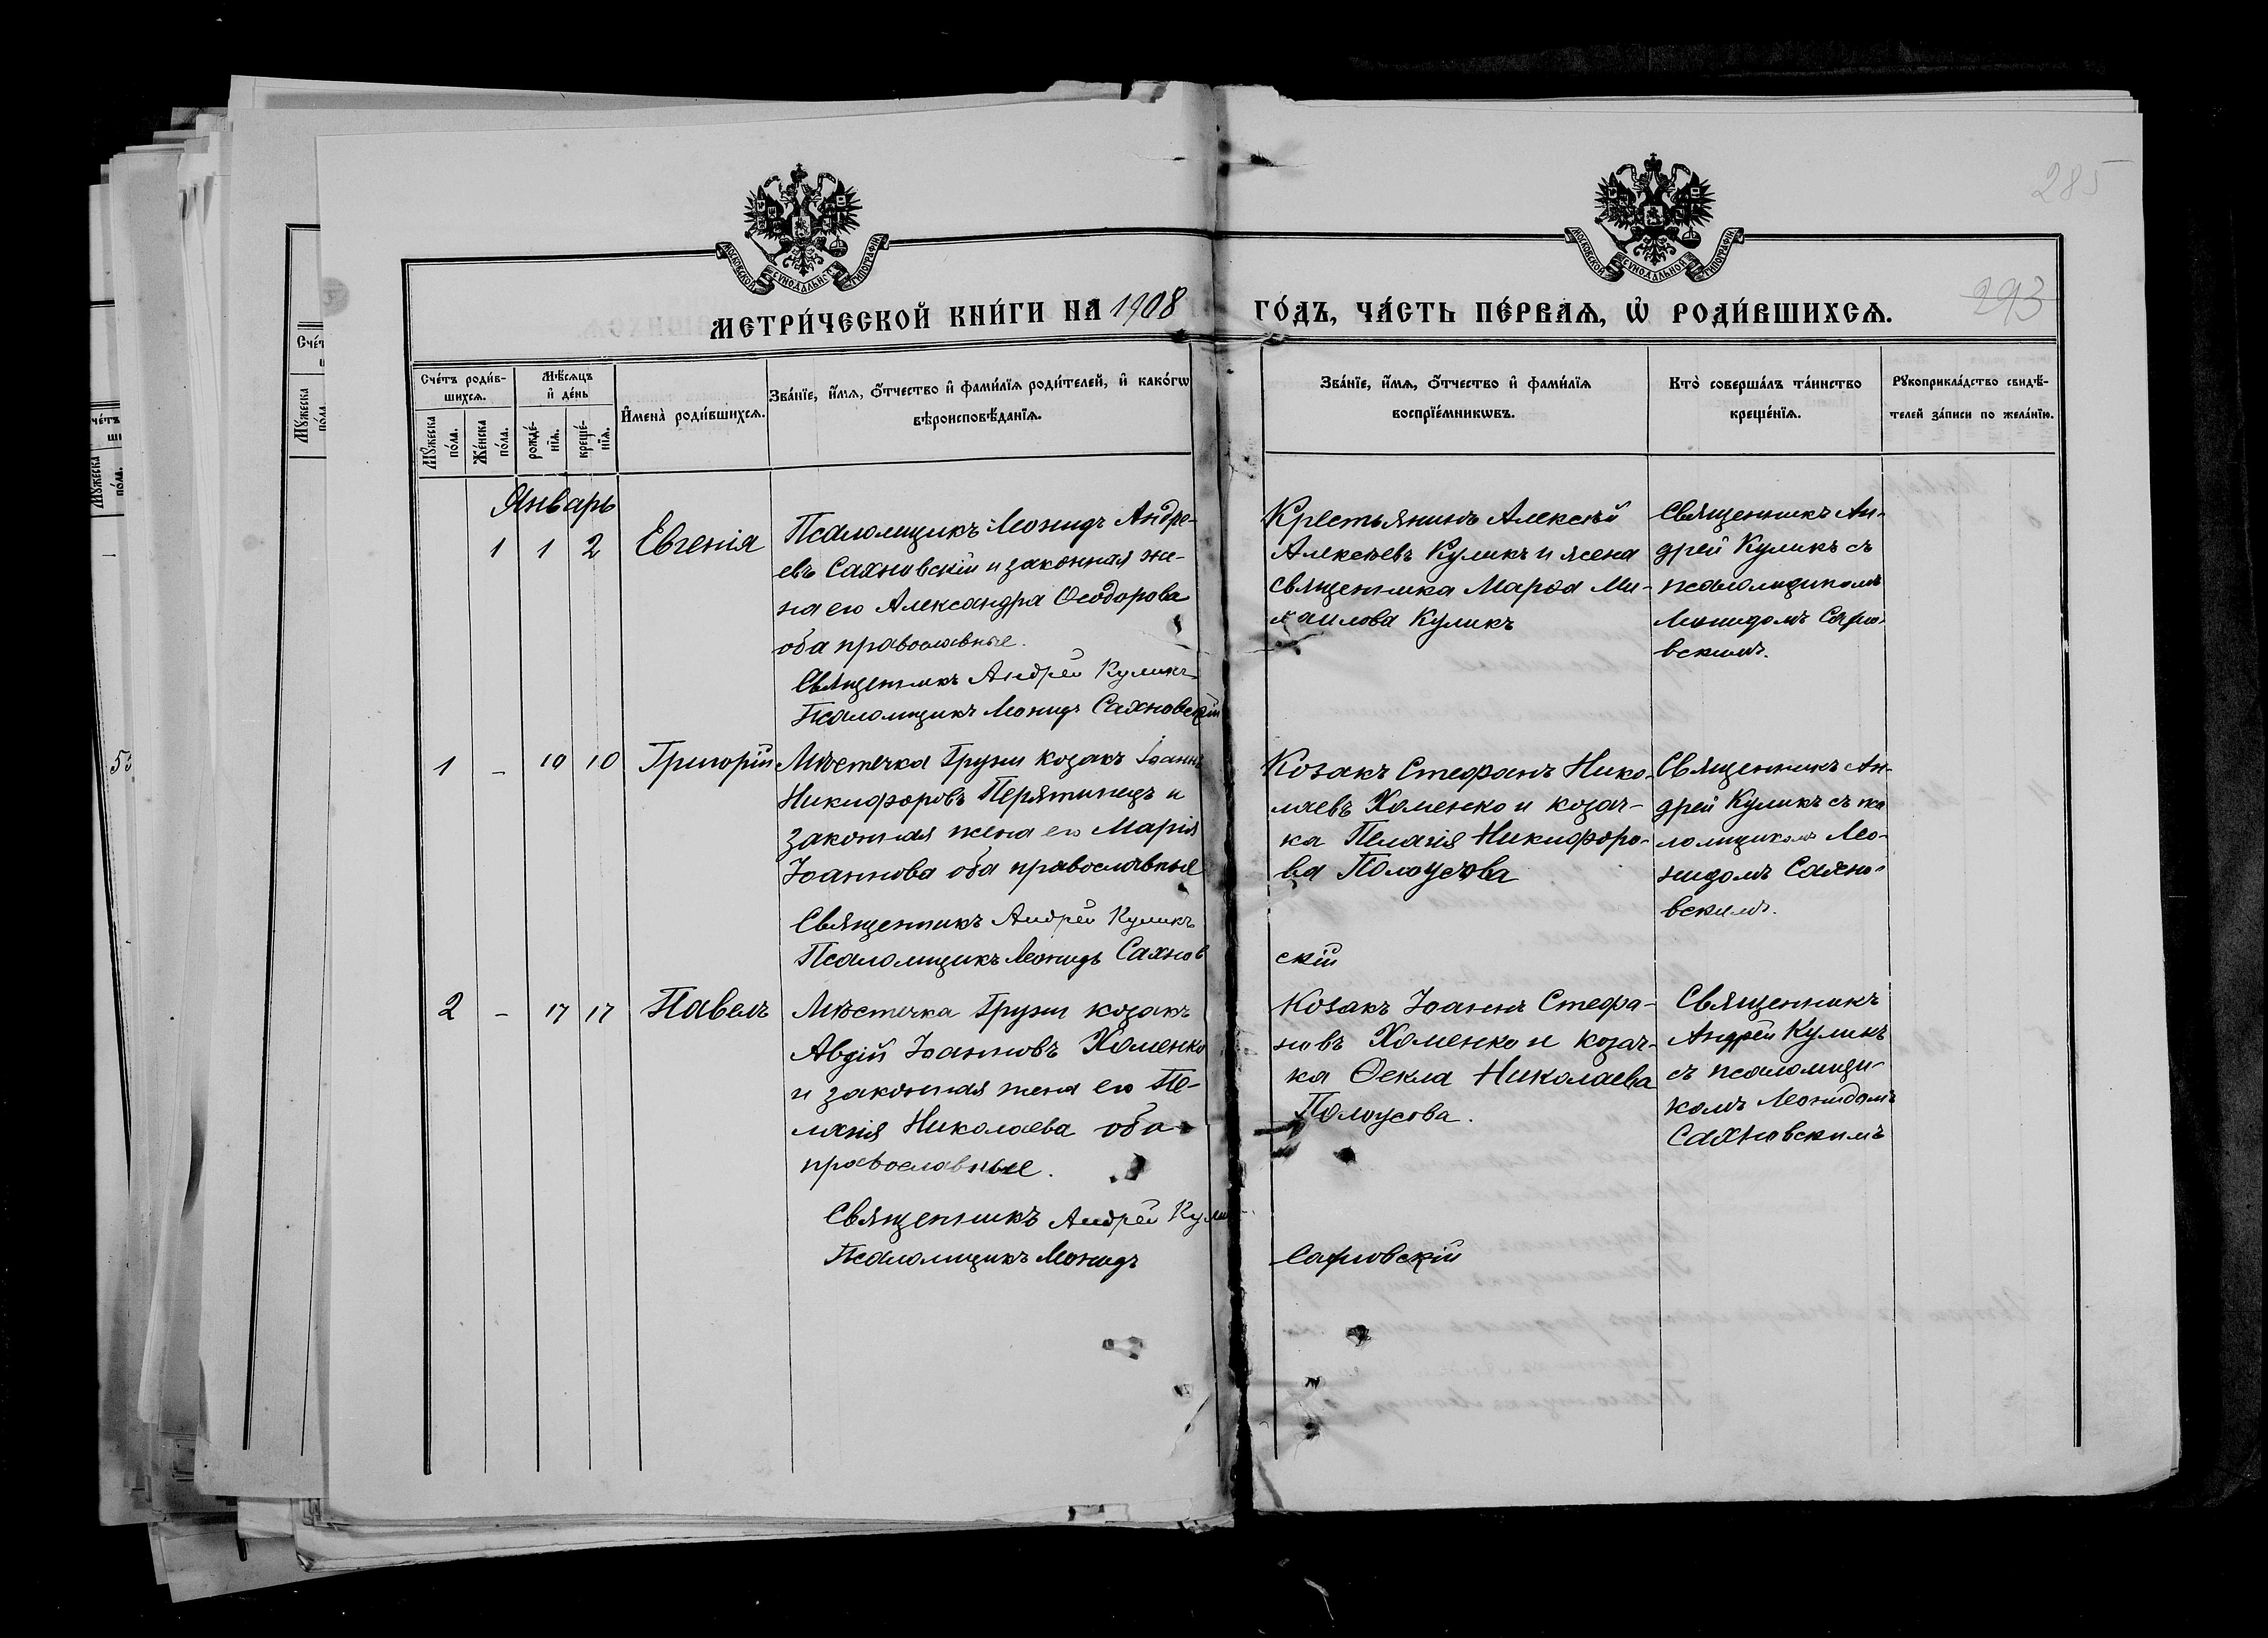 285
293
МОСКОВСКОЙ СУНОДАЛЬНОЙ ТИПОГРАФІИ
МОСКОВСКОЙ СУНОДАЛЬНОЙ ТИПОГРАФІИ
МЕТРИ́ЧЕСКОЙ КНИ́ГИ НА 1908 ГО́ДЪ, ЧА́СТЬ ПЕ́РВАѦ, Ѡ҆ РОДИ́ВШИХСѦ.
Сче́тъ роди́в-
шихсѧ.
Мѣ́сѧцъ
и҆ де́нь
И҆мена̀ роди́вшихсѧ.
Зва́нїе, и҆́мѧ, ѻ҆́тчество и҆ фами́лїѧ роди́телей, и҆ како́гѡ
вѣроисповѣ́данїѧ.
Зва́нїе, и҆́мѧ, ѻ҆́тчество и҆ фами́лїѧ
воспрїе́мникѡвъ.
Кто̀ соверша́лъ та́инство
креще́нїѧ.
Рꙋкоприкла́дство свидѣ́-
телей за́писи по жела́нїю.
Мꙋ́жеска
по́ла.
Же́нска
по́ла.
рожде́-
нїѧ.
креще́-
нїѧ.
Январь
1 1 2 Евгенія
Псаломщикъ Леонидъ Андре-
евъ Сахновскій и законная же-
на его Александра Ѳеодорова
оба православные.
Священникъ Андрей Куликъ
Псаломщикъ Леонидъ Сахновскій
Крестьянинъ Алексѣй
Алексѣевъ Куликъ и жена
священника Марѳа Ми-
хаилова Куликъ
Священникъ Ан-
дрей Куликъ съ
псаломщикомъ
Леонидомъ Сахно-
вскимъ.
1 - 10 10 Григорій
Мѣстечка Грузи козакъ Іоаннъ
Никифоровъ Перятинецъ и
законная жена его Марія
Іоаннова оба православные
Священникъ Андрей Куликъ
Псаломщикъ Леонидъ Сахнов
скій
Козакъ Стефанъ Нико-
лаевъ Хоменко и козач-
ка Пелагія Никифоро-
ва Полоусова
Священникъ Ан-
дрей Куликъ съ пса
ломщикомъ Лео-
нидомъ Сахно-
вскимъ.
2 - 17 17 Павелъ
Мѣстечка Грузи козакъ
Авдій Іоанновъ Хоменко
и законная жена его Пе-
лагія Николаева оба
православные.
Священникъ Андрей Кули
Псаломщикъ Леонидъ
Сахновскій
Козакъ Іоаннъ Стефа-
новъ Хоменко и козач-
ка Ѳекла Николаева
Полоусова.
Священникъ
Андрей Куликъ
съ псаломщи-
комъ Леонидомъ
Сахновскимъ